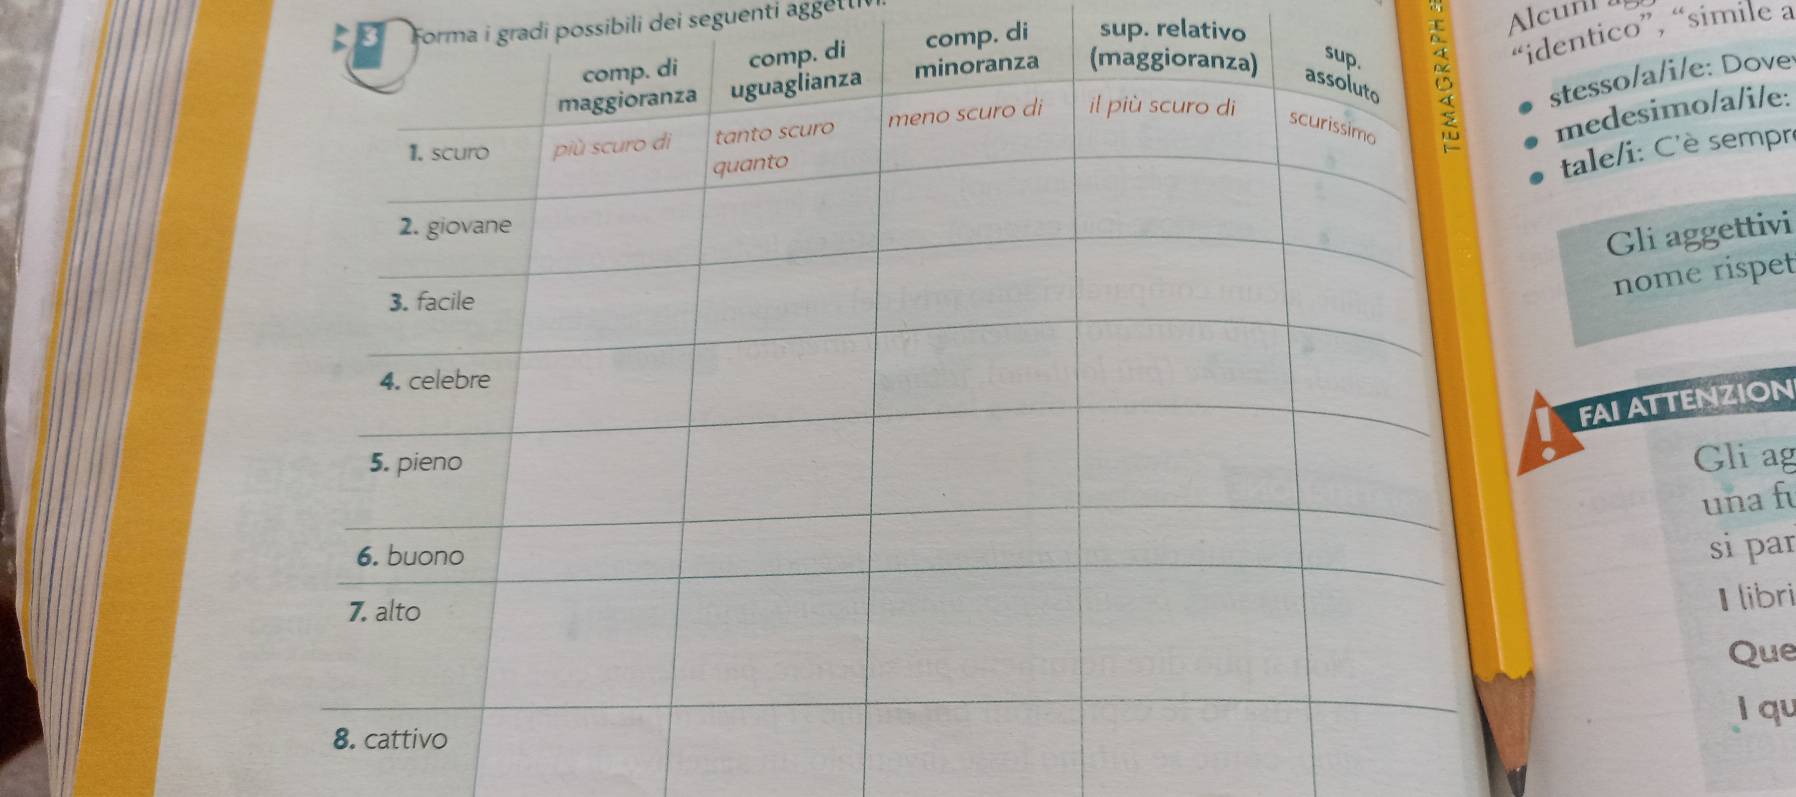 3 Forma i gradi possibili dei seguenti aggettivi.
comp. di maggioranza
comp. di uguaglianza
comp. di minoranza
sup. relativo (maggioranza)
sup. assoluto
1. scuro
più scuro di
tanto scuro quanto
meno scuro di
il più scuro di
scurissimo
2. giovane
3. facile
4. celebre
5. pieno
6. buono
7. alto
8. cattivo
TEMAGRAPH
Alcuni
“identico”, “simile a
• stesso/a/i/e: Dove
• medesimo/a/i/e:
• tale/i: C'è sempr
Gli aggettivi
nome rispet
! FAI ATTENZION
Gli ag
una fu
si par
I libri
Que
I qu